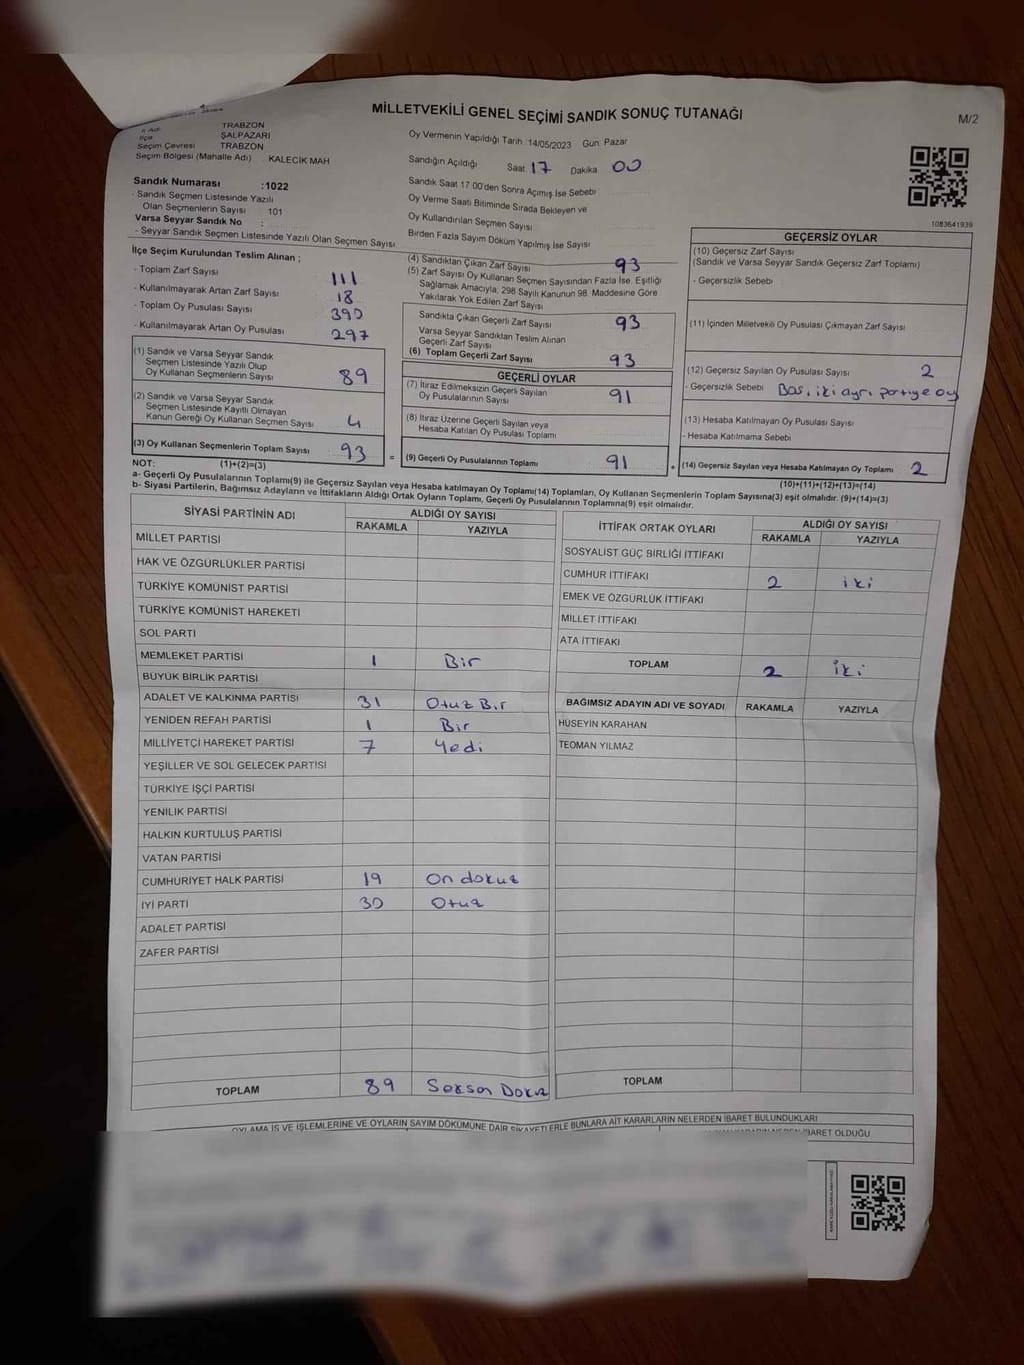 MİLLETVEKİLİ GENEL SEÇİMİ SANDIK SONUÇ TUTANAĞI
M/2
TRABZON
İlçe ŞALPAZARI
Seçim Çevresi TRABZON
Seçim Bölgesi (Mahalle Adı) : KALECİK MAH
Sandık Numarası :1022
- Sandık Seçmen Listesinde Yazılı
Olan Seçmenlerin Sayısı 101
Varsa Seyyar Sandık No :
- Seyyar Sandık Seçmen Listesinde Yazılı Olan Seçmen Sayısı
Oy Vermenin Yapıldığı Tarih 14/05/2023 Gün: Pazar
Sandığın Açıldığı Saat 17 Dakika 00
Sandık Saat 17:00'den Sonra Açımış İse Sebebi
Oy Verme Saati Bitiminde Sırada Bekleyen ve
Oy Kullandırılan Seçmen Sayısı
Birden Fazla Sayım Döküm Yapılmış İse Sayısı
1083641939
İlçe Seçim Kurulundan Teslim Alınan ;
- Toplam Zarf Sayısı 111
- Kullanılmayarak Artan Zarf Sayısı 18
- Toplam Oy Pusulası Sayısı 390
- Kullanılmayarak Artan Oy Pusulası 297
(1) Sandık ve Varsa Seyyar Sandık
Seçmen Listesinde Yazılı Olup
Oy Kullanan Seçmenlerin Sayısı 89
(2) Sandık ve Varsa Seyyar Sandık
Seçmen Listesinde Kayıtlı Olmayan
Kanun Gereği Oy Kullanan Seçmen Sayısı 4
(3) Oy Kullanan Seçmenlerin Toplam Sayısı 93 =
(1)+(2)=(3)
(4) Sandıktan Çıkan Zarf Sayısı 93
(5) Zarf Sayısı Oy Kullanan Seçmen Sayısından Fazla İse, Eşitliği
Sağlamak Amacıyla, 298 Sayılı Kanunun 98. Maddesine Göre
Yakılarak Yok Edilen Zarf Sayısı
Sandıkta Çıkan Geçerli Zarf Sayısı 93
Varsa Seyyar Sandıktan Teslim Alınan
Geçerli Zarf Sayısı
(6) Toplam Geçerli Zarf Sayısı 93
GEÇERLİ OYLAR
(7) İtiraz Edilmeksizin Geçerli Sayılan
Oy Pusulalarının Sayısı 91
(8) İtiraz Üzerine Geçerli Sayılan veya
Hesaba Katılan Oy Pusulası Toplamı
(9) Geçerli Oy Pusulalarının Toplamı 91 +
GEÇERSİZ OYLAR
(10) Geçersiz Zarf Sayısı
(Sandık ve Varsa Seyyar Sandık Geçersiz Zarf Toplamı)
- Geçersizlik Sebebi
(11) İçinden Milletvekili Oy Pusulası Çıkmayan Zarf Sayısı
(12) Geçersiz Sayılan Oy Pusulası Sayısı 2
- Geçersizlik Sebebi Boş, iki ayrı partiye oy
(13) Hesaba Katılmayan Oy Pusulası Sayısı
- Hesaba Katılmama Sebebi
(14) Geçersiz Sayılan veya Hesaba Katılmayan Oy Toplamı 2
(10)+(11)+(12)+(13)=(14)
NOT:
a- Geçerli Oy Pusulalarının Toplamı(9) ile Geçersiz Sayılan veya Hesaba katılmayan Oy Toplamı(14) Toplamları, Oy Kullanan Seçmenlerin Toplam Sayısına(3) eşit olmalıdır. (9)+(14)=(3)
b- Siyasi Partilerin, Bağımsız Adayların ve İttifakların Aldığı Ortak Oyların Toplamı, Geçerli Oy Pusulalarının Toplamına(9) eşit olmalıdır.
SİYASİ PARTİNİN ADI ALDIĞI OY SAYISI
RAKAMLA YAZIYLA
MİLLET PARTİSİ
HAK VE ÖZGÜRLÜKLER PARTİSİ
TÜRKİYE KOMÜNİST PARTİSİ
TÜRKİYE KOMÜNİST HAREKETİ
SOL PARTİ
MEMLEKET PARTİSİ 1 Bir
BÜYÜK BİRLİK PARTİSİ
ADALET VE KALKINMA PARTİSİ 31 Otuz Bir
YENİDEN REFAH PARTİSİ 1 Bir
MİLLİYETÇİ HAREKET PARTİSİ 7 Yedi
YEŞİLLER VE SOL GELECEK PARTİSİ
TÜRKİYE İŞÇİ PARTİSİ
YENİLİK PARTİSİ
HALKIN KURTULUŞ PARTİSİ
VATAN PARTİSİ
CUMHURİYET HALK PARTİSİ 19 On dokuz
İYİ PARTİ 30 Otuz
ADALET PARTİSİ
ZAFER PARTİSİ
TOPLAM 89 Seksen Dokuz
İTTİFAK ORTAK OYLARI ALDIĞI OY SAYISI
RAKAMLA YAZIYLA
SOSYALİST GÜÇ BİRLİĞİ İTTİFAKI
CUMHUR İTTİFAKI 2 iki
EMEK VE ÖZGÜRLÜK İTTİFAKI
MİLLET İTTİFAKI
ATA İTTİFAKI
TOPLAM 2 iki
BAĞIMSIZ ADAYIN ADI VE SOYADI RAKAMLA YAZIYLA
HÜSEYİN KARAHAN
TEOMAN YILMAZ
TOPLAM
OYLAMA İŞ VE İŞLEMLERİNE VE OYLARIN SAYIM DÖKÜMÜNE DAİR ŞİKAYETLERLE BUNLARA AİT KARARLARIN NELERDEN İBARET BULUNDUKLARI
İBARET OLDUĞU